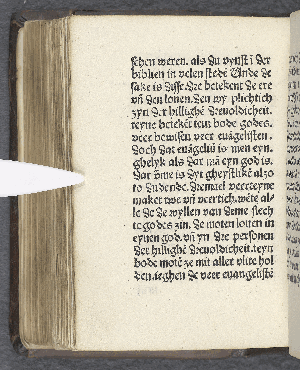 schen weren. als du vynst ī der
biblien in velen stedē Unde de
sake is disse. dre betekent de ere
vñ den lonen. den wy plichtich
zyn der hillighē drevoldicheit.
teyne betekēt tein bode godes.
veer bowisen veer euāgelisten.
doch dat euāgeliū is men eyn.
ghelyk als dar mā eyn god is.
dat ōme is dyt gheystlikē alzo
to dudende. dremael veerteyne
maket twe vñ veertich. wēte al
le de de wyllen van deme slech
te godes zin. de moten louen in
eynen god. vñ yn dre personen
der hillighē drevoldicheit. teyn
bode motē ze mit aller vlite hol
den. seghen de veer euangelistē